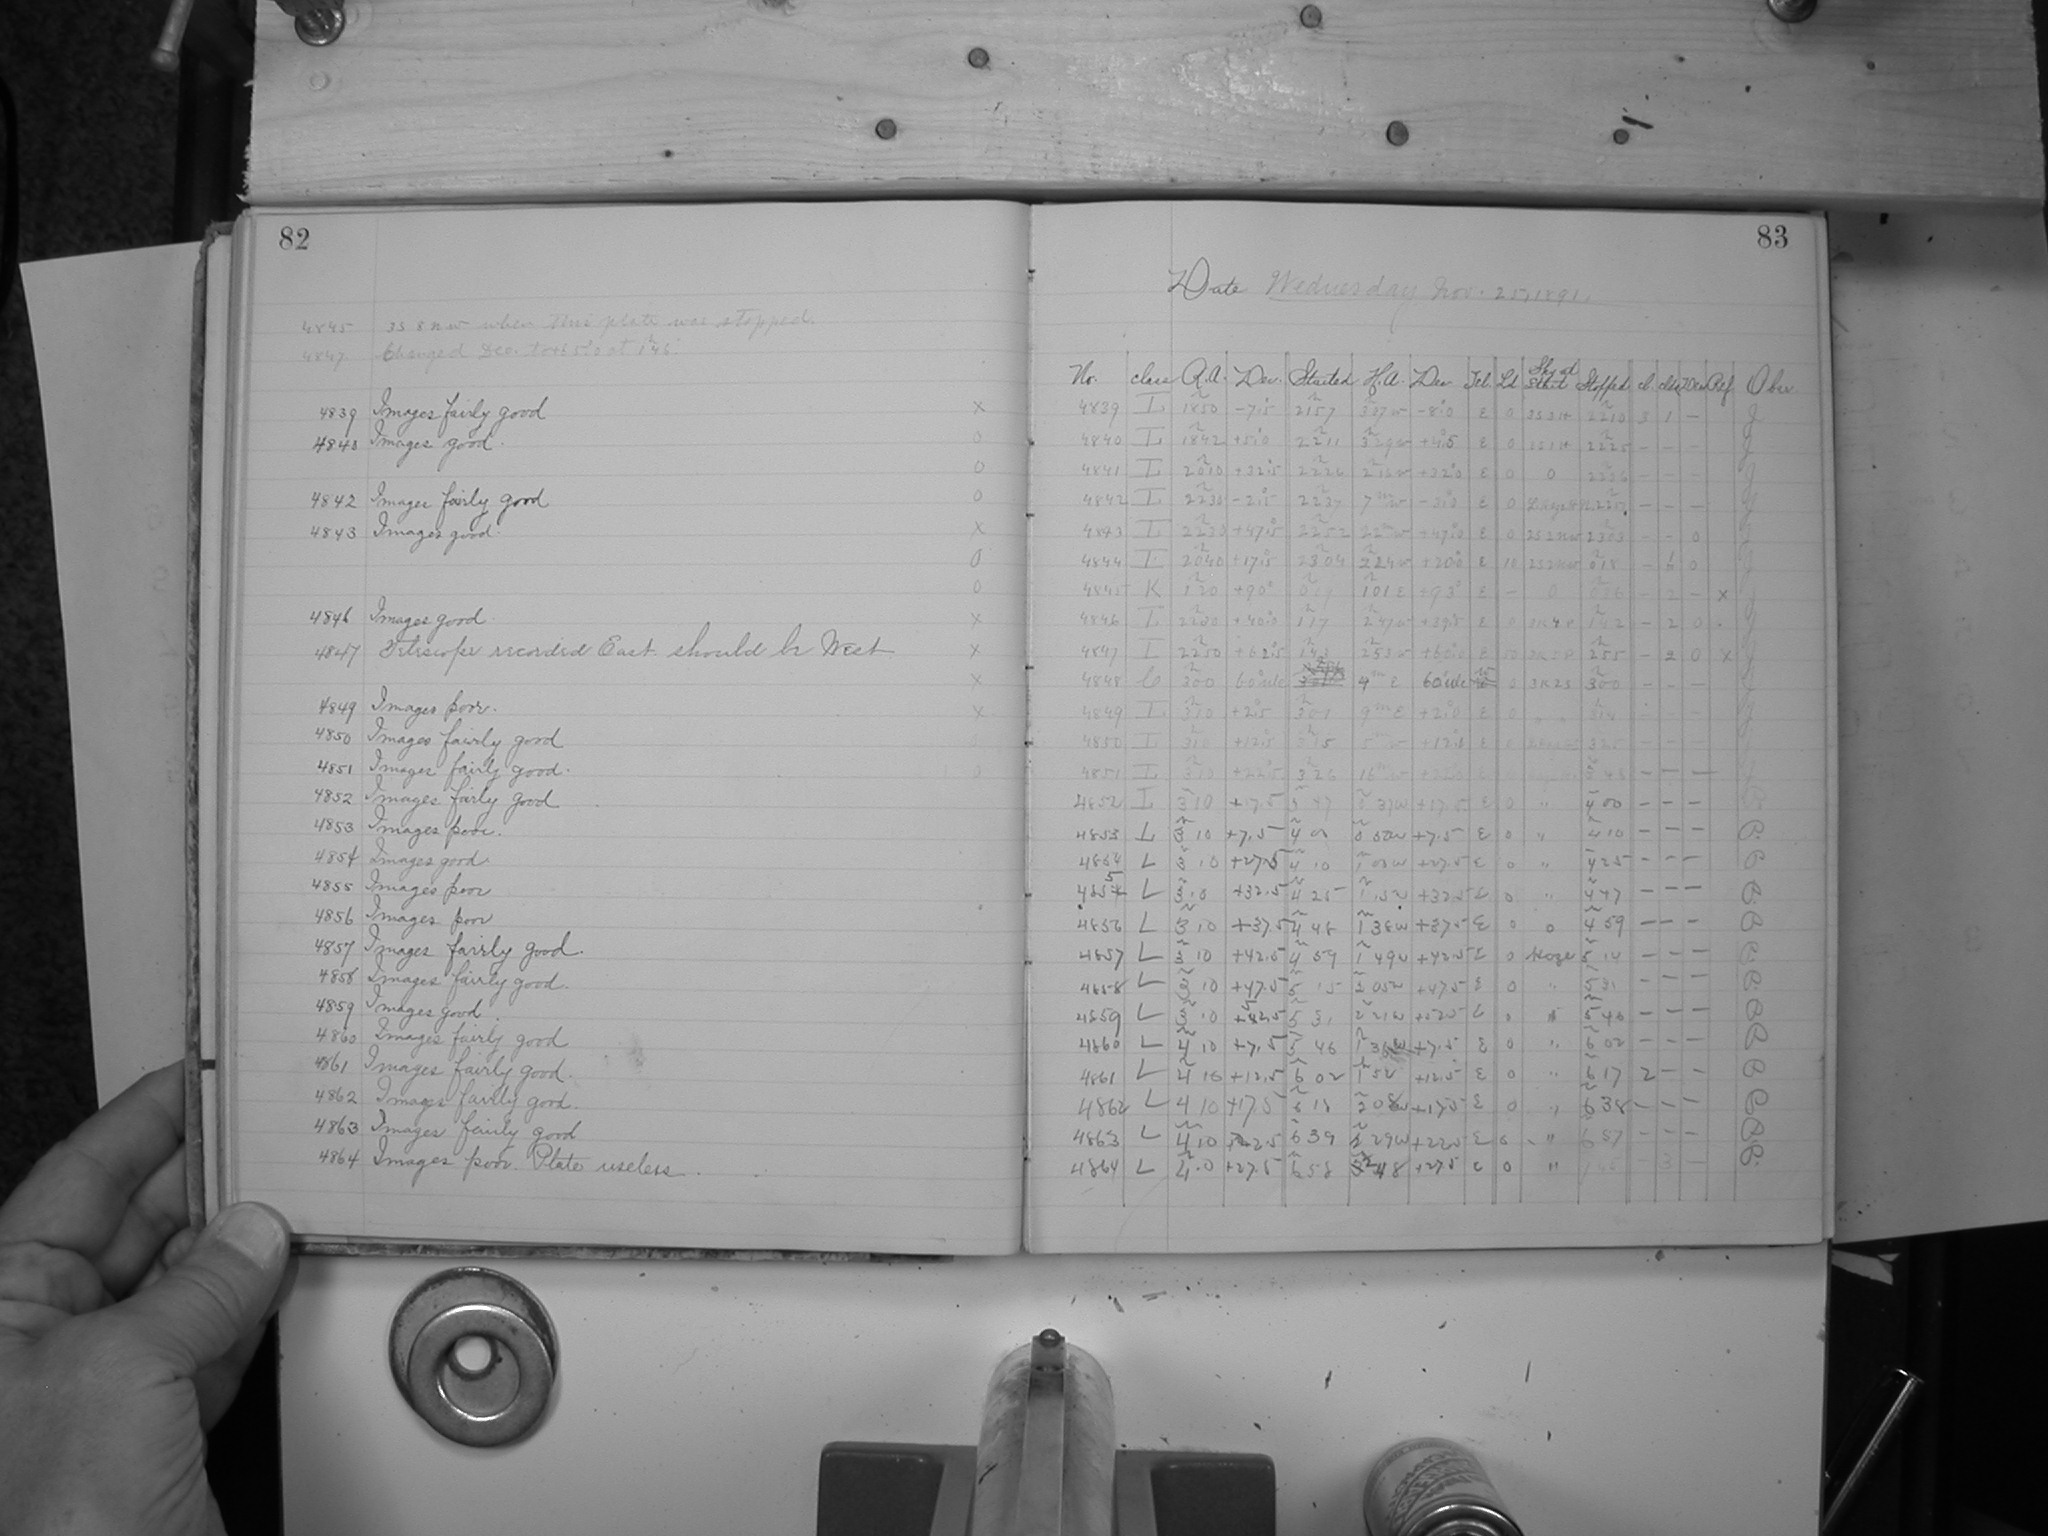 82
4845 3S 8 NW when this plate was stopped.
4847 Changed Dec. to +65°.0 at 1h46
4839 Images fairly good x
4840 Images good. 0
0
4842 Images fairly good 0
4843 Images good. x
0
0
4846 Images good. x
4847 Telescope recorded East should be West x
x
4849 Images poor. x
4850 Images fairly good
4851 Images fairly good. 0
4852 Images fairly good
4853 Images poor.
4854 Images good.
4855 Images poor
4856 Images poor
4857 Images fairly good.
4858 Images fairly good.
4859 Images good.
4860 Images fairly good
4861 Images fairly good.
4862 Images fairly good.
4863 Images fairly good
4864 Images poor. Plate useless.
83
Date Wednesday Nov. 25, 1891.
No. Class R.A. Dec. Started H.A. Dec Tel. Ld Sky at Start Stopped Cl. Clk Dec Ref Obsr.
4839 L 18 50 -7.5 21 57 3 07 w -8.0 E 0 22 10 3 1 -
4840 L 18 42 +5.0 22 11 3 29 w +4.5 E 0 22 25 - - -
4841 L 20 10 +32.5 22 26 +32.0 E 0 0 22 36 - - -
4842 L 22 30 -2.5 22 37 7m w -3.0 E 0 - - -
4843 L 22 30 +47.5 22 52 22m w +47.0 E 0 2S 2 NW 23 03 - - 0
4844 L 20 40 +17.5 23 04 2 24 w E 10 2S 2 NW 0 18 - 0
4845 K 1 20 +90° 0 19 1 01 E +93° E - 0 - 2 - x
4846 L 22 30 +40.0 1 17 2 47 w +39.5 E 0 1 42 - 2 0
4847 L 22 50 +62.5 1 43 2 53 w +60.0 E 2 55 - 2 0 x
4848 C 3 00 60° 4m E 60° 0 3 00 - - -
4849 L 3 10 +2.5 3 01 9m E +2.0 E 0 - - -
4850 L 3 10 +12.5 3 15 5m w E 3 25 - - -
4851 L 3 10 +22.5 3 26 16m w - - -
4852 L 3 10 +17.5 3 47 37 w +17.5 E 0 " 4 00 - - -
4853 L 3 10 +7.5 0 50 w +7.5 E 0 " 4 10 - - -
4854 L 3 10 +27.5 4 10 1 00 w +27.5 E 0 " 4 25 - - -
4855 L 3 10 +32.5 4 25 1 15 w +32.5 E 0 " 4 47 - - -
4856 L 3 10 +37.5 4 48 1 38 w +37.5 E 0 0 4 59 - - -
4857 L 3 10 +42.5 4 59 1 49 w +42.5 E 0 Haze 5 14 - - -
4858 L 3 10 +47.5 5 15 2 05 w +47.5 E 0 " 5 31 - - -
4859 L 3 10 +52.5 5 31 2 21 w +52.5 E 0 " 5 46 - - -
4860 L 4 10 +7.5 5 46 1 36 w +7.5 E 0 " 6 02 - - -
4861 L 4 10 +12.5 6 02 1 52 +12.5 E 0 " 6 17 2 - -
4862 L 4 10 +17.5 6 18 2 08 w +17.5 E 0 " 6 38 - - -
4863 L 4 10 +22.5 6 39 2 29 w +22.5 E 0 " 6 57 - - -
4864 L 4 10 +27.5 6 58 2 48 +27.5 E 0 " - 3 -